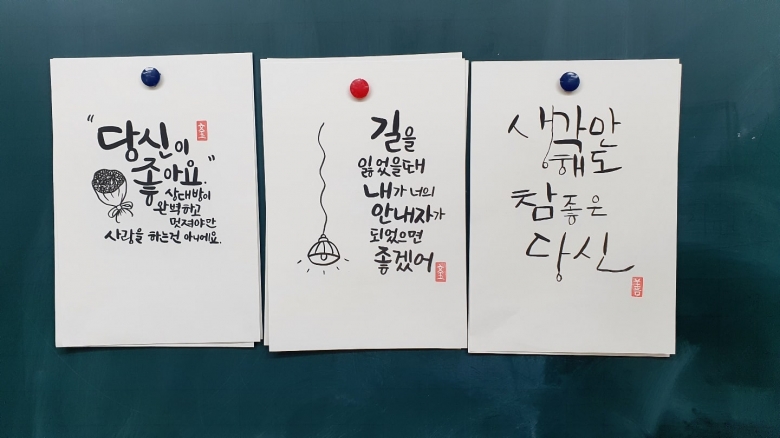 "당신이
좋아요."
상대방이
완벽하고
멋져야만
사랑을 하는건 아니에요.
길을
잃었을때
내가 너의
안내자가
되었으면
좋겠어
생각만
해도
참 좋은
당신